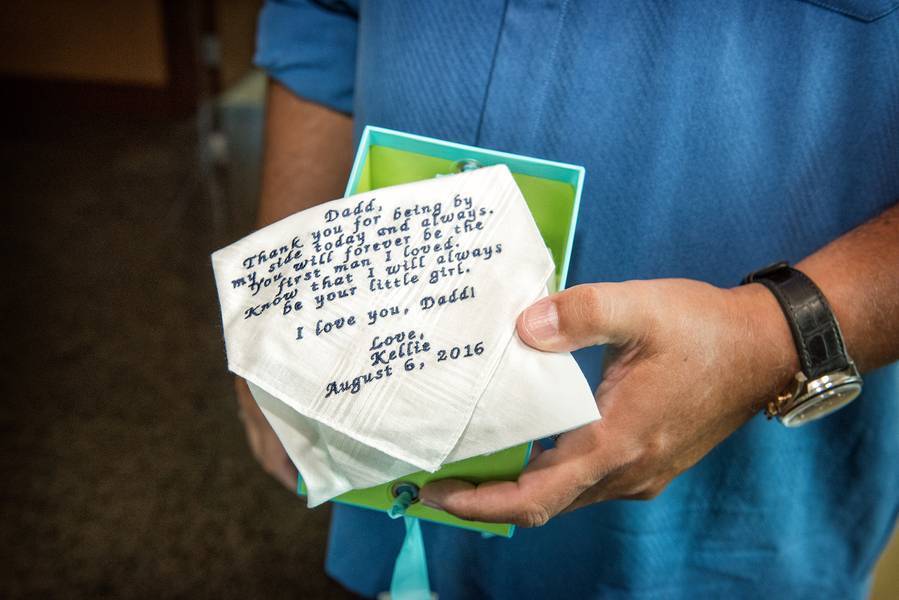 Dadd,
Thank you for being by
my side today and always.
You will forever be the
first man I loved.
Know that I will always
be your little girl.
I love you, Dadd!
Love,
Kellie
August 6, 2016